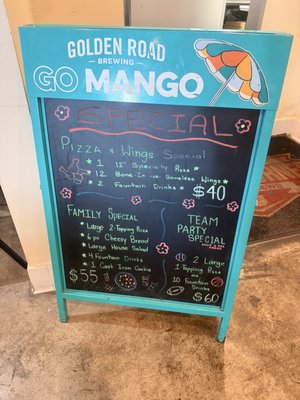 GOLDEN ROAD
BREWING
GO MANGO
SPECIAL
PIZZA & Wings Special
★ 1 12" Specialty Pizza ★
★ 12 Bone-In or Boneless Wings ★
★ 2 Fountain Drinks ★ $40
FAMILY Special
★ Large 2-Topping Pizza
★ 6 pc Cheesy Bread
★ Large House Salad
★ 4 Fountain Drinks
★ 1 Cast Iron Cookie
$55
TEAM
PARTY
SPECIAL
2 Large
1 Topping Pizza
and
10 Fountain
Drinks
$60